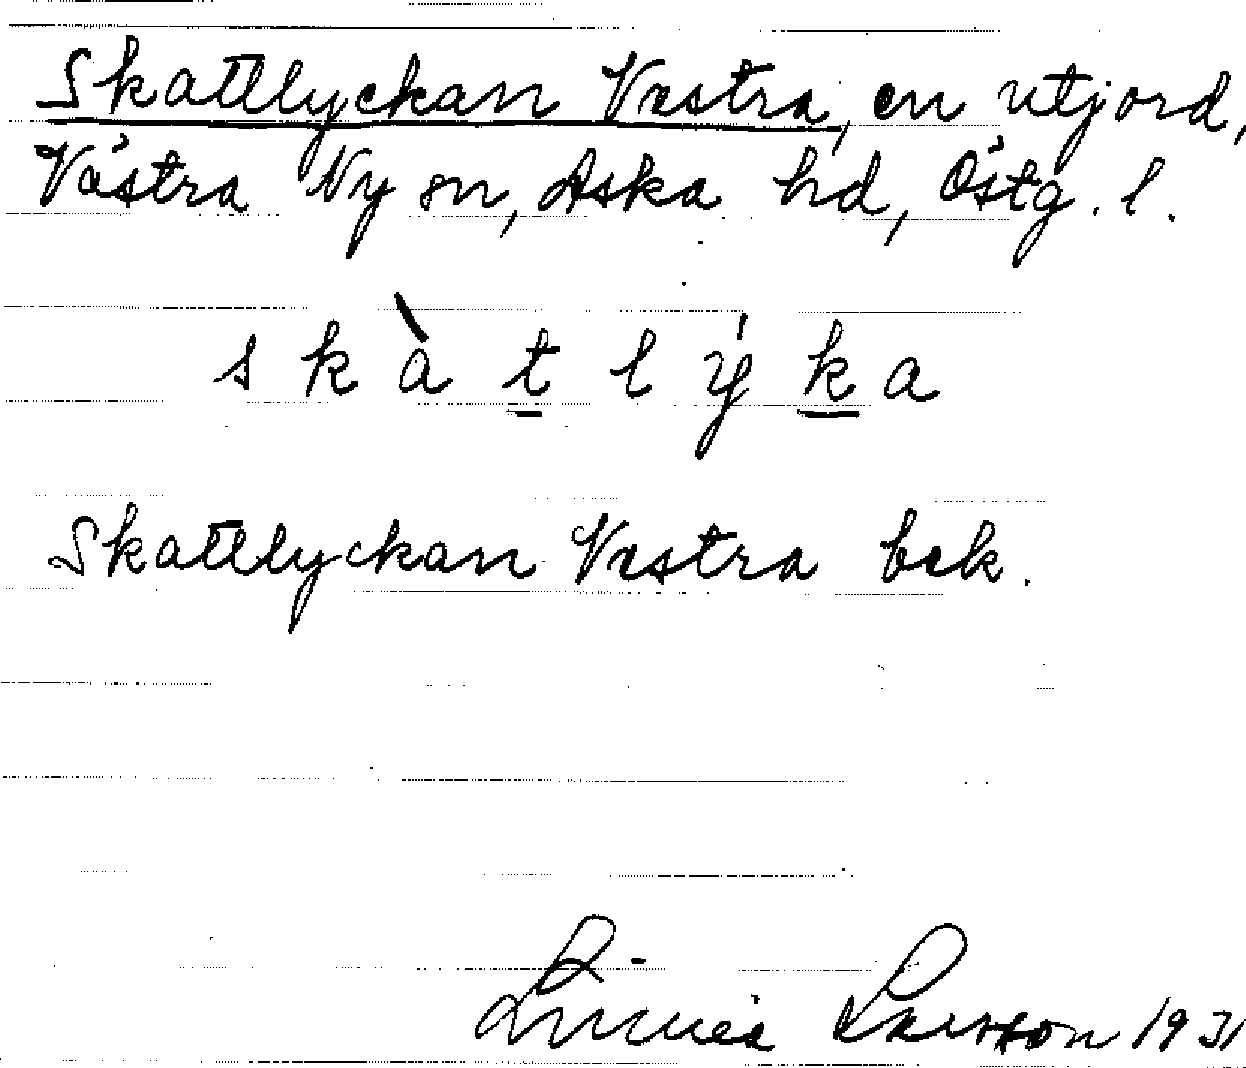 Skattlyckan Vestra, en utjord,
Västra Ny sn, Aska hd, Östg. l.
s k à t l ý k a
Skattlyckan Vestra bek.
Linnéa Larsson 1931